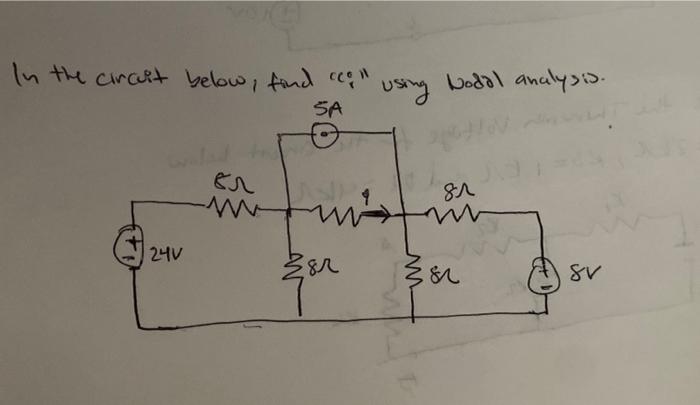 In the circuit below, find "i" using Nodal analysis.
5A
8Ω
i
8Ω
24V
8Ω
8Ω
8V